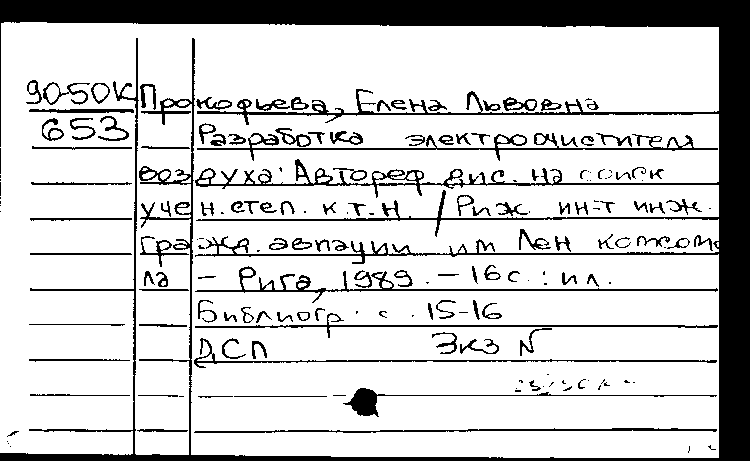 90-50К Прокофьева, Елена Львовна
653 Разработка электроочистителя
воздуха: Автореф. дис. на соиск
учен. степ. к.т.н. / Риж ин-т инж.
гражд. авиации им Лен комсомо
ла - Рига, 1989. - 16с. : ил.
Библиогр. с. 15-16
ДСП Экз N